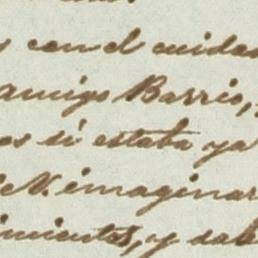 con el cuidad
amigo Barrio,
os si estaba ya
N. imaginar
imientos, y sab